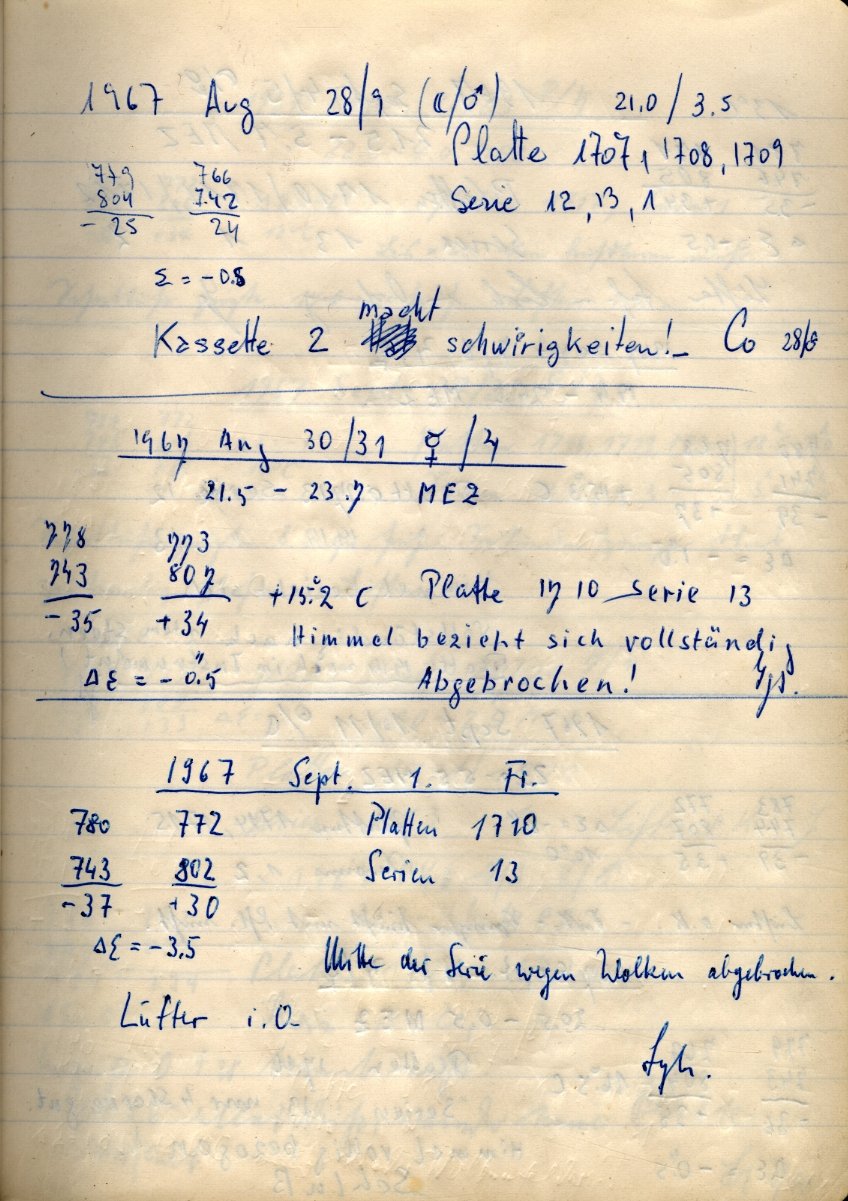 1967 Aug 28/9 (☾/♂) 21.0 / 3.5
Platte 1707, 1708, 1709
779 766
804 742
Serie 12, 13, 1
- 25 24
Σ = - 0.5
macht
Kassette 2 schwirigkeiten! Co 28/8
1967 Aug 30/31 ☿/♃
21.5 - 23.7 MEZ
778 773
743 807 +15.°2 C Platte 1710 Serie 13
- 35 + 34
Himmel bezieht sich vollständig
Δε = - 0."5 Abgebrochen!
1967 Sept. 1. Fr.
780 772 Platten 1710
743 802 Serien 13
- 37 + 30
Δε = - 3.5
Mitte der Serie wegen Wolken abgebrochen.
Lüfter i.O.